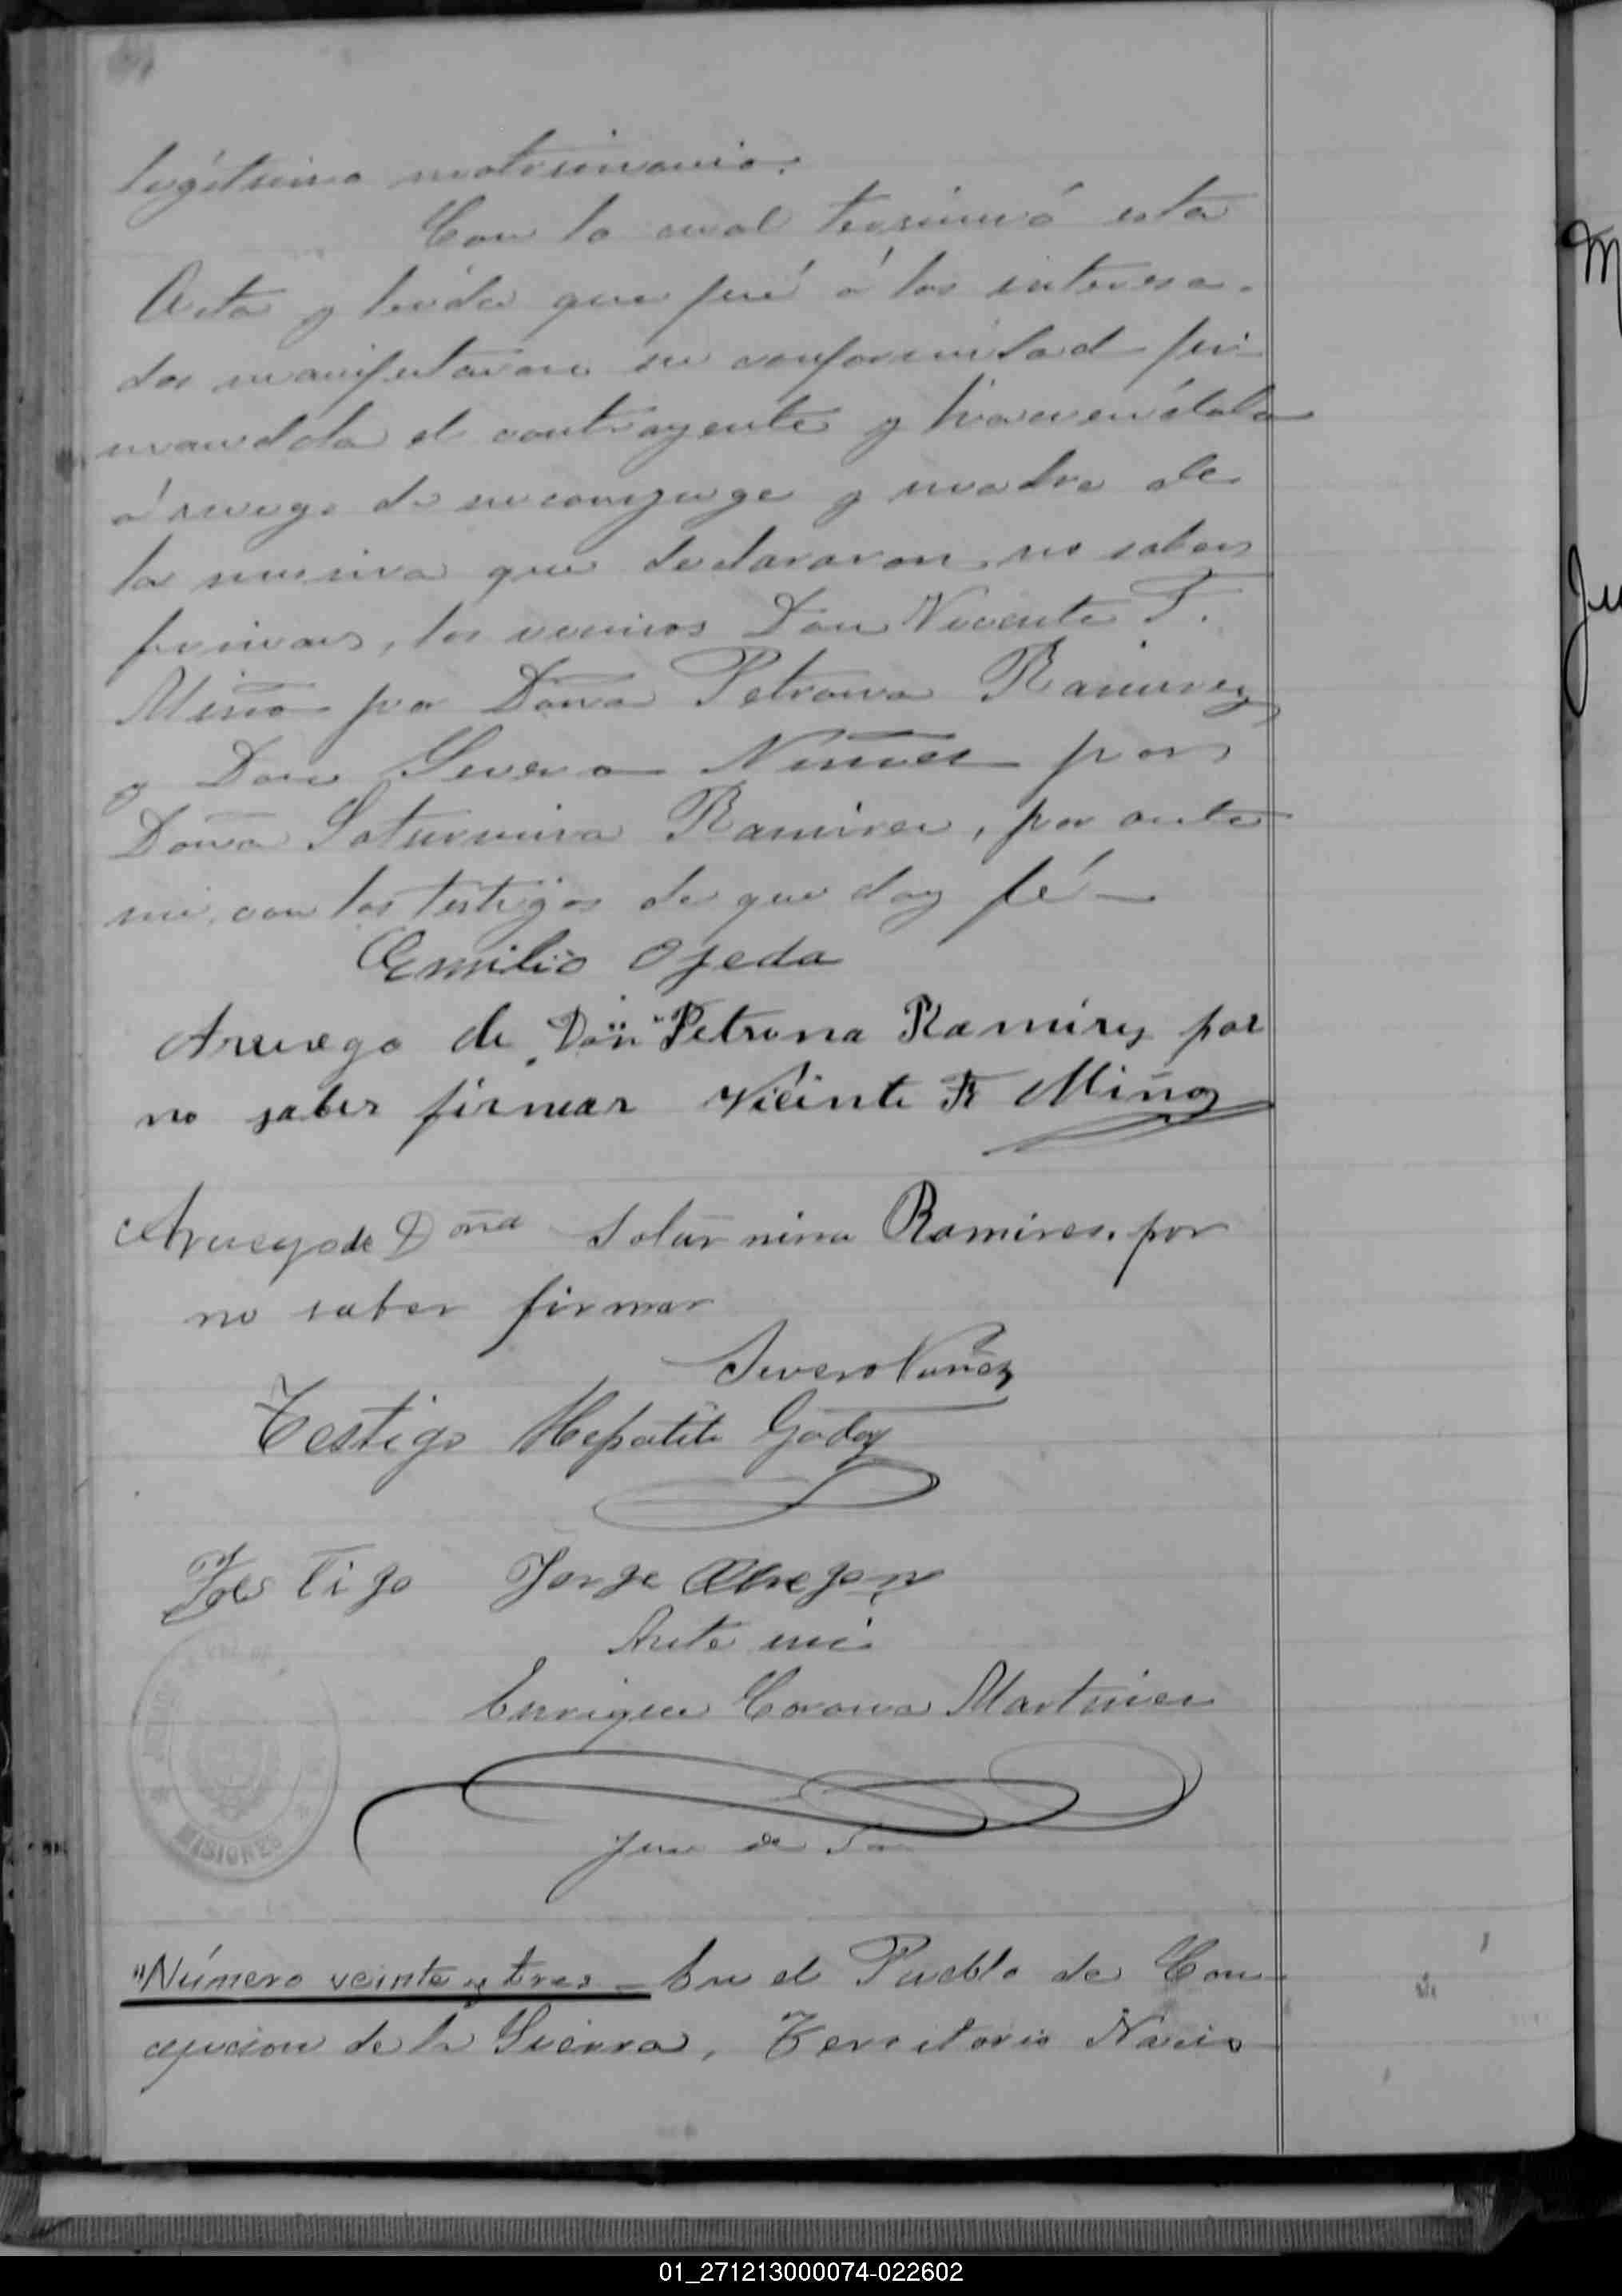 legítimo matrimonio.
Con lo cual terminó esta
Acta y leida que fué á los interesa-
dos manifestaron su conformidad fir-
mandola el contrayente y haciendolo
á ruego de su conyuge y madre de
la misma que declararon no saber
firmar, los vecinos Don Vicente F.
Miño por Doña Petrona Ramirez
y Don Severo Nuñez por
Doña Saturnina Ramirez, por ante
mi, con los testigos de que doy fé —
Emilio Ojeda
Arruego de Doñ Petrona Ramirez por
no saber firmar Vicente F Miño
Arruego de Doña Saturnina Ramires. por
no saber firmar
Severo Nuñez
Testigo Godoy
Testigo Jorge Obregon
Ante mi
Enrique Corona Martinez
Juez de
MISIONES
"Número veinte y tres — En el Pueblo de Con-
cepcion de la Sierra, Territorio Nacio
M
Ju
01_271213000074-022602